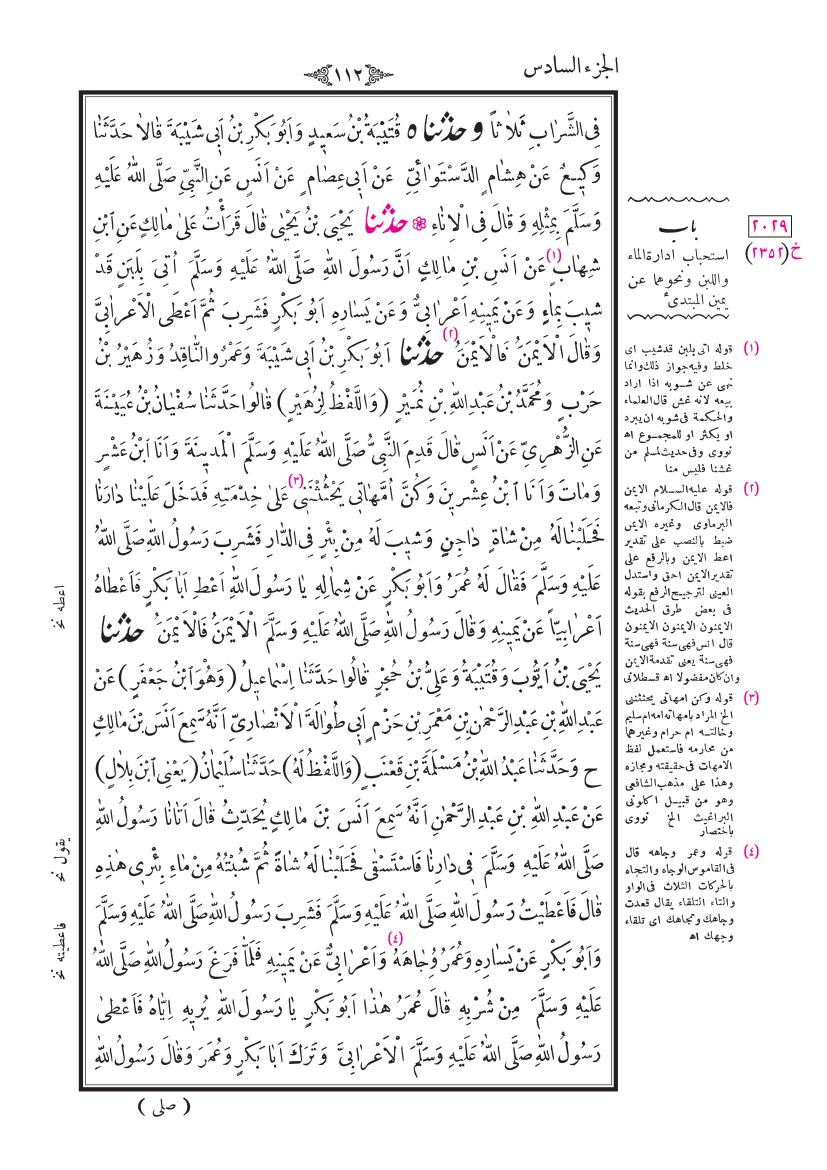 الجزء السادس
١١٢
فِى الشَّرَابِ ثَلَاثاً و حدثنا ه قُتَيْبَةُ بْنُ سَعِيدٍ وَ اَبُو بَكْرِ بْنُ اَبِى شَيْبَةَ قَالَا حَدَّثَنَا
وَكِيعٌ عَنْ هِشَامٍ الدَّسْتَوَائِىِّ عَنْ اَبِى عِصَامٍ عَنْ اَنَسٍ عَنِ النَّبِىِّ صَلَّى اللهُ عَلَيْهِ
وَسَلَّمَ بِمِثْلِهِ وَ قَالَ فِى الْاِنَاءِ ❁ حدثنا يَحْيَى بْنُ يَحْيٰى قَالَ قَرَأْتُ عَلىٰ مَالِكٍ عَنِ ابْنِ
شِهَابٍ (١) عَنْ اَنَسِ بْنِ مَالِكٍ اَنَّ رَسُولَ اللهِ صَلَّى اللهُ عَلَيْهِ وَسَلَّمَ اُتِىَ بِلَبَنٍ قَدْ
شِيبَ بِمَاءٍ وَ عَنْ يَمِينِهِ اَعْرَابِىٌّ وَعَنْ يَسَارِهِ اَبُو بَكْرٍ فَشَرِبَ ثُمَّ اَعْطَى الْاَعْرَابِىَّ
وَقَالَ الْاَيْمَنُ فَالْاَيْمَنُ (٢) حدثنا اَبُو بَكْرِ بْنُ اَبِى شَيْبَةَ وَ عَمْرٌو النَّاقِدُ وَ زُهَيْرُ بْنُ
حَرْبٍ وَ مُحَمَّدُ بْنُ عَبْدِ اللهِ بْنِ نُمَيْرٍ (وَاللَّفْظُ لِزُهَيْرٍ) قَالُوا حَدَّثَنَا سُفْيَانُ بْنُ عُيَيْنَةَ
عَنِ الزُّهْرِىِّ عَنْ اَنَسٍ قَالَ قَدِمَ النَّبِىُّ صَلَّى اللهُ عَلَيْهِ وَسَلَّمَ الْمَدِينَةَ وَ اَنَا ابْنُ عَشْرٍ
وَ مَاتَ وَ اَنَا ابْنُ عِشْرِينَ وَ كُنَّ اُمَّهَاتِى يَحْثُثْنَنِى (٣) عَلىٰ خِدْمَتِهِ فَدَخَلَ عَلَيْنَا دَارَنَا
فَحَلَبْنَا لَهُ مِنْ شَاةٍ دَاجِنٍ وَشِيبَ لَهُ مِنْ بِئْرٍ فِى الدَّارِ فَشَرِبَ رَسُولُ اللهِ صَلَّى اللهُ
عَلَيْهِ وَسَلَّمَ فَقَالَ لَهُ عُمَرُ وَ اَبُو بَكْرٍ عَنْ شِمَالِهِ يَا رَسُولَ اللهِ اَعْطِ اَبَا بَكْرٍ فَاَعْطَاهُ
اَعْرَابِيّاً عَنْ يَمِينِهِ وَ قَالَ رَسُولُ اللهِ صَلَّى اللهُ عَلَيْهِ وَسَلَّمَ الْاَيْمَنُ فَالْاَيْمَنُ حدثنا
يَحْيَى بْنُ اَيُّوبَ وَ قُتَيْبَةُ وَ عَلِىُّ بْنُ حُجْرٍ قَالُوا حَدَّثَنَا اِسْمَاعِيلُ (وَهُوَ ابْنُ جَعْفَرٍ) عَنْ
عَبْدِ اللهِ بْنِ عَبْدِ الرَّحْمٰنِ بْنِ مَعْمَرِ بْنِ حَزْمٍ اَبِى طُوَالَةَ الْاَنْصَارِىِّ اَنَّهُ سَمِعَ اَنَسَ بْنَ مَالِكٍ
ح وَ حَدَّثَنَا عَبْدُ اللهِ بْنُ مَسْلَمَةَ بْنِ قَعْنَبٍ (وَاللَّفْظُ لَهُ) حَدَّثَنَا سُلَيْمَانُ (يَعْنِى ابْنَ بِلَالٍ)
عَنْ عَبْدِ اللهِ بْنِ عَبْدِ الرَّحْمٰنِ اَنَّهُ سَمِعَ اَنَسَ بْنَ مَالِكٍ يُحَدِّثُ قَالَ اَتَانَا رَسُولُ اللهِ
صَلَّى اللهُ عَلَيْهِ وَسَلَّمَ فِى دَارِنَا فَاسْتَسْقٰى فَحَلَبْنَا لَهُ شَاةً ثُمَّ شُبْتُهُ مِنْ مَاءِ بِئْرِى هٰذِهِ
قَالَ فَاَعْطَيْتُ رَسُولَ اللهِ صَلَّى اللهُ عَلَيْهِ وَسَلَّمَ فَشَرِبَ رَسُولُ اللهِ صَلَّى اللهُ عَلَيْهِ وَسَلَّمَ
وَ اَبُو بَكْرٍ عَنْ يَسَارِهِ وَ عُمَرُ وُجَاهَهُ (٤) وَ اَعْرَابِىٌّ عَنْ يَمِينِهِ فَلَمَّا فَرَغَ رَسُولُ اللهِ صَلَّى اللهُ
عَلَيْهِ وَسَلَّمَ مِنْ شُرْبِهِ قَالَ عُمَرُ هٰذَا اَبُو بَكْرٍ يَا رَسُولَ اللهِ يُرِيهِ اِيَّاهُ فَاَعْطٰى
رَسُولُ اللهِ صَلَّى اللهُ عَلَيْهِ وَسَلَّمَ الْاَعْرَابِىَّ وَ تَرَكَ اَبَا بَكْرٍ وَ عُمَرَ وَ قَالَ رَسُولُ اللهِ
( صلى )
٢٠٢٩
خ (٢٣٥٢)
باب
استحباب ادارة الماء
واللبن ونحوهما عن
يمين المبتدئ
(١) قوله اتى بلبن قد شيب اى
خلط وفيه جواز ذلك وانما
نهى عن شوبه اذا اراد
بيعه لانه غش قال العلماء
والحكمة فى شوبه ان يبرد
او يكثر او للمجموع اه
نووى وفى حديث لمسلم من
غشنا فليس منا
(٢) قوله عليه السلام الايمن
فالايمن قال الكرمانى وتبعه
البرماوى وغيره الايمن
ضبط بالنصب على تقدير
اعط الايمن وبالرفع على
تقدير الايمن احق واستدل
العينى لترجيح الرفع بقوله
فى بعض طرق الحديث
الايمنون الايمنون الايمنون
قال انس فهى سنة فهى سنة
فهى سنة يعنى تقدمة الايمن
وان كان مفضولا اه قسطلانى
(٣) قوله وكن امهاتى يحثثننى
الخ المراد بامهاته امه ام سليم
وخالته ام حرام وغيرهما
من محارمه فاستعمل لفظ
الامهات فى حقيقته ومجازه
وهذا على مذهب الشافعى
وهو من قبيل اكلونى
البراغيث الخ نووى
باختصار
(٤) قوله وعمر وجاهه قال
فى القاموس الوجاه والتجاه
بالحركات الثلاث فى الواو
والتاء التلقاء يقال قعدت
وجاهك وتجاهك اى تلقاء
وجهك اه
اعطه نخ
يقول نخ
فاعطيته نخ